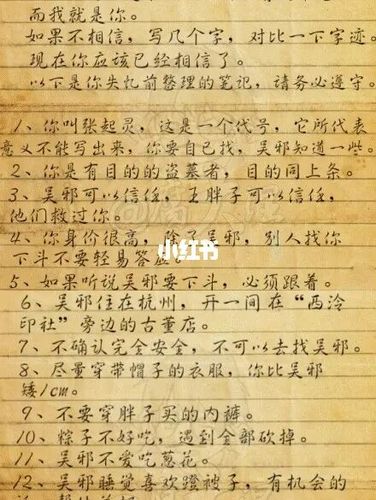 而我就是你。
如果不相信,写几个字,对比一下字迹。
现在你应该已经相信了。
以下是你失忆前整理的笔记,请务必遵守。
1、你叫张起灵,这是一个代号,它所代表
意义不能写出来,你要自己找,吴邪知道一些。
2、你是有目的的盗墓者,目的同上条。
3、吴邪可以信任,王胖子可以信任,
他们救过你。
4、你身价很高,除了吴邪,别人找你
下斗不要轻易答应。
小红书
5、如果听说吴邪要下斗,必须跟着。
6、吴邪住在杭州,开一间在“西泠
印社”旁边的古董店。
7、不确认完全安全,不可以去找吴邪。
8、尽量穿带帽子的衣服,你比吴邪
矮1cm。
9、不要穿胖子买的内裤。
10、粽子不好吃,遇到全部砍掉。
11、吴邪不爱吃葱花。
12、吴邪睡觉喜欢蹬被子,有机会的